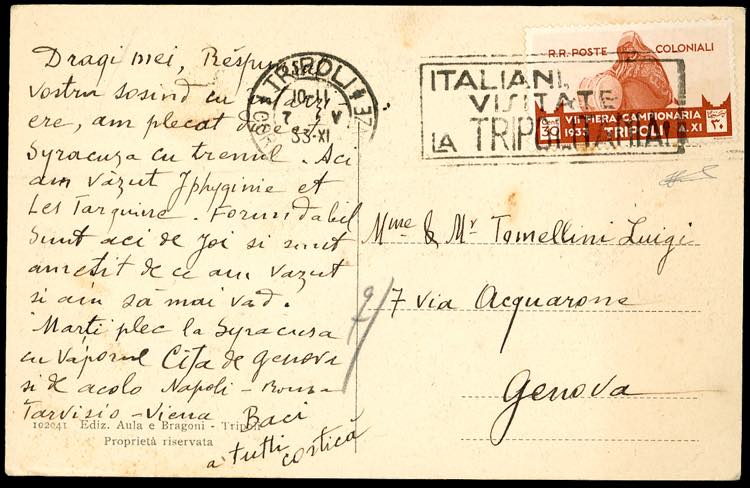 Dragi mei, Răspunsul
vostru sosind cu întârzi
ere, am plecat
Syracuza cu trenul. Aci
am văzut Iphyginie et
Les Tarquins. Formidabil
Sunt aci de joi si sunt
ametit de ce am văzut
si am să mai văd.
Marti plec la Syracusa
cu vaporul Cita de genova
si de acolo Napoli - Roma
Tarvisio - Viena Baci
a tutti
costică
102041 Ediz. Aula e Bragoni - Tripoli
Proprietà riservata
TRIPOLI
10-11
7 V
33-XI
ITALIANI,
VISITATE
LA TRIPOLITANIA!
R.R. POSTE COLONIALI
VII FIERA CAMPIONARIA
Cent 30 1933 TRIPOLI A. XI ٣٠
Mme & Mr Tomellini Luigi
7 via Acquarone
Genova